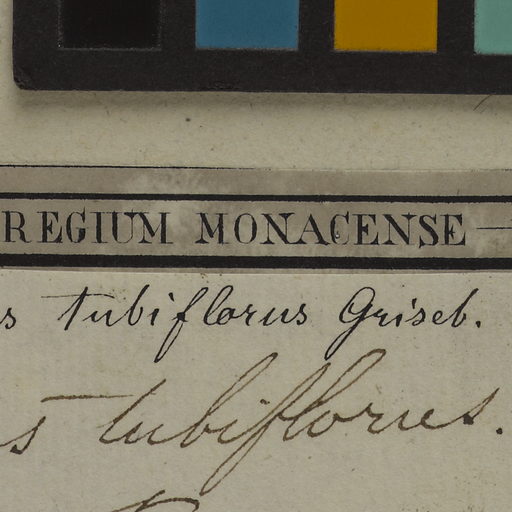 REGIUM MONACENSE
s tubiflorus Griseb.
s tubiflorus.